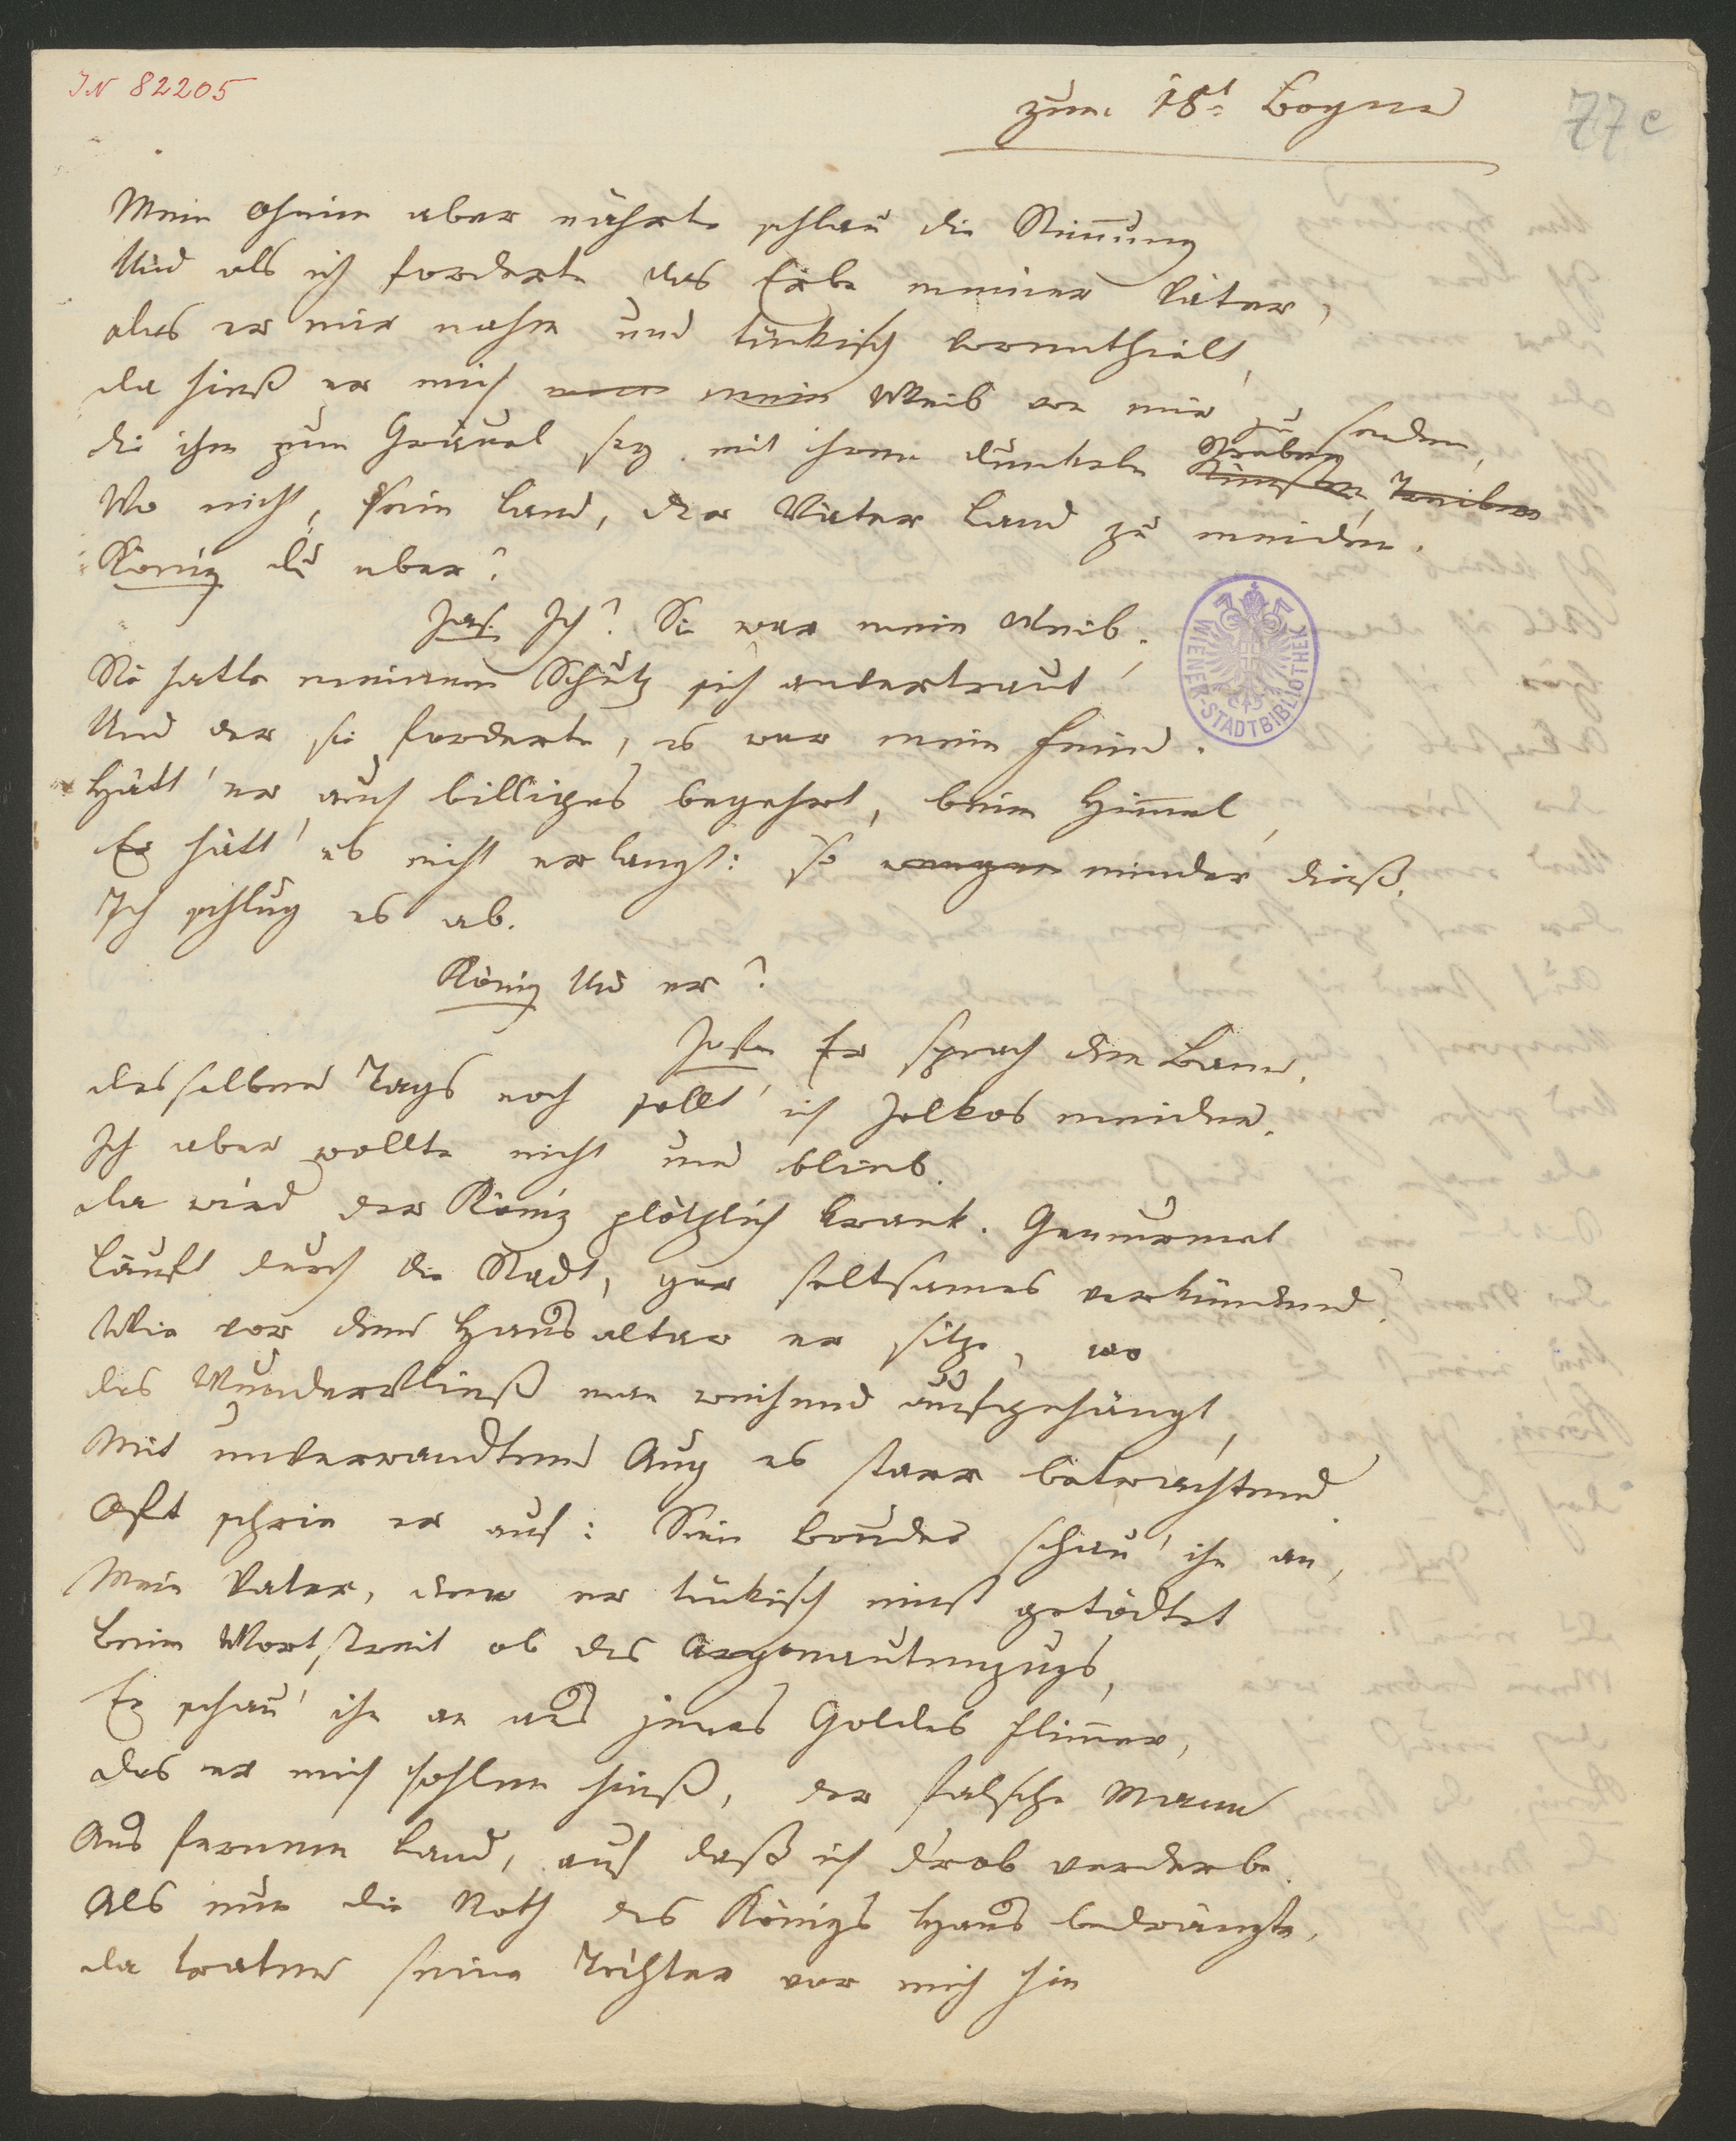 IN 82205
zum 18t Bogen
77c
Mein Oheim aber nährte schlau die Stimmung
Und als ich forderte das Erbe meiner Väter,
das er mir nahm und tückisch vorenthielt,
da hieß er mich mein Weib von mir zu senden,
die ihm zum Gräuel sey mit ihrem dunkeln Künsten, Treiben Streben
Wo nicht, sein Land, der Väter Land zu meiden.
König du aber?
Jas. Ich? Sie war mein Weib,
Sie hatte meinem Schutz sich anvertraut
Und der sie forderte, es war mein Feind.
Hätt' er auch billiges begehrt, beim Himmel,
Er hätt' es nicht erlangt: so minder dieß.
Ich schlug es ab.
König Und er?
Jason Er sprach den Bann.
desselben Tags noch sollt' ich Jolkos meiden.
Ich aber wollte nicht und blieb.
da wird der König plötzlich krank. Gemurmel
Läuft durch die Stadt, gar seltsames verkündend:
Wie vor dem Hausaltar er sitze, wo
das Wundervließ man weihend aufgehängt,
Mit unverwandtem Aug es starr betrachtend
Oft schrie er auf: Sein Bruder schau' ihn an,
Mein Vater, den er tückisch einst getödtet
beim Wortstreit ob des Argonautenzugs,
Er schau' ihn an aus jenes Goldes Flimmer,
das er mich hohlen hieß, der falsche Mann
Aus fernem Land, auf daß ich d'rob verderbe.
Als nun die Noth des Königs Haus bedrängte,
da traten seine Töchter vor mich hin
WIENER-STADTBIBLIOTHEK